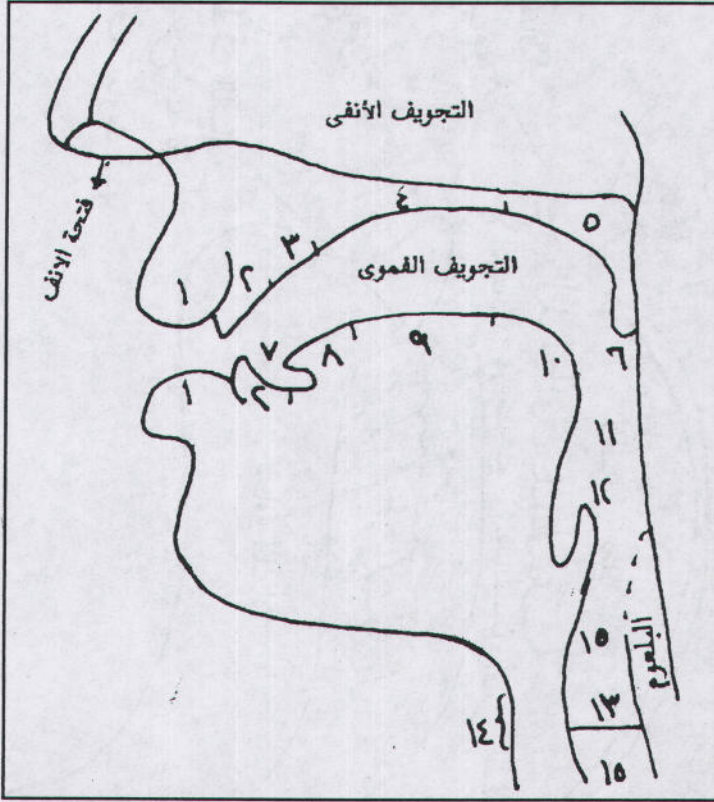 التجويف الأنفى
فتحة الانف
٤
٥
٣
٢
١
التجويف الفموى
٧
٨
٩
١٠
٦
١
٢
١١
١٢
البلعوم
١٥
١٣
١٤
١٥